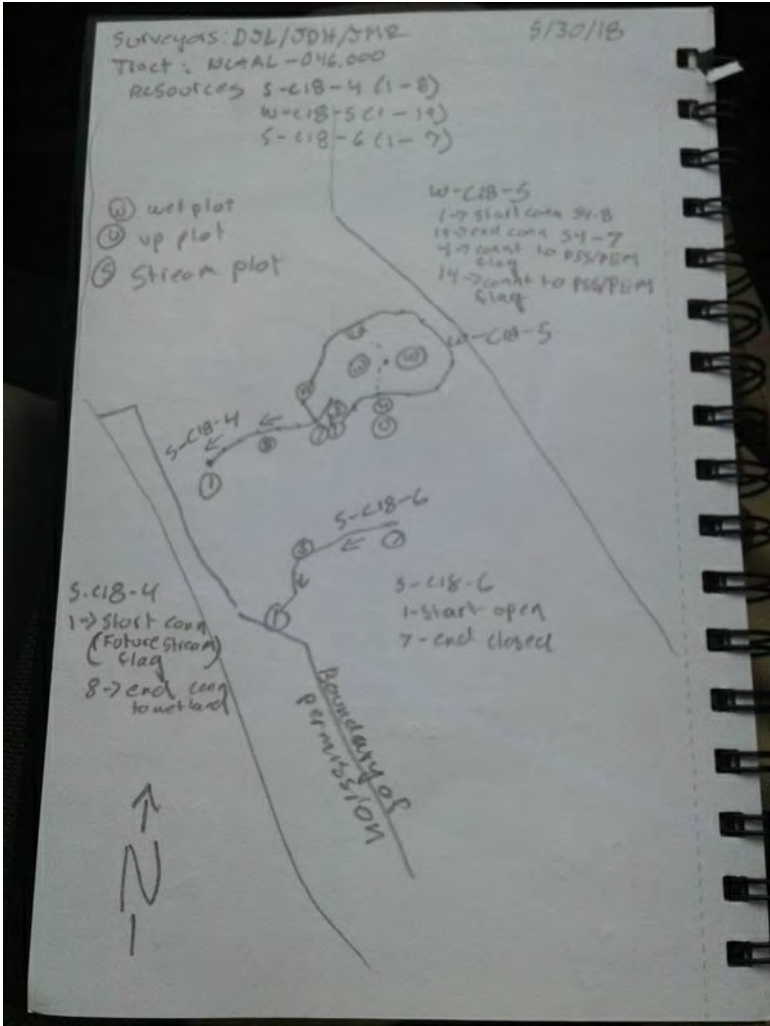 Surveyors: DJL/JDH/JMR
5/30/18
Tract: NC-AL-046.000
Resources S-C18-4 (1-8)
W-C18-5 (1-19)
S-C18-6 (1-7)
W wet plot
U up plot
S Stream plot
W-C18-5
1-> Start conn S4-8
19-> end conn S4-7
4-> connt to PSS/PEM
flag
14-> connt to PSS/PEM
flag
W-C18-5
W
W
S-C18-4
U
1
S-C18-6
7
1
S-C18-4
1-> Start conn
(Future stream
flag)
8-> end conn
to wetland
S-C18-6
1-Start open
7-end closed
Boundary of
permission
N